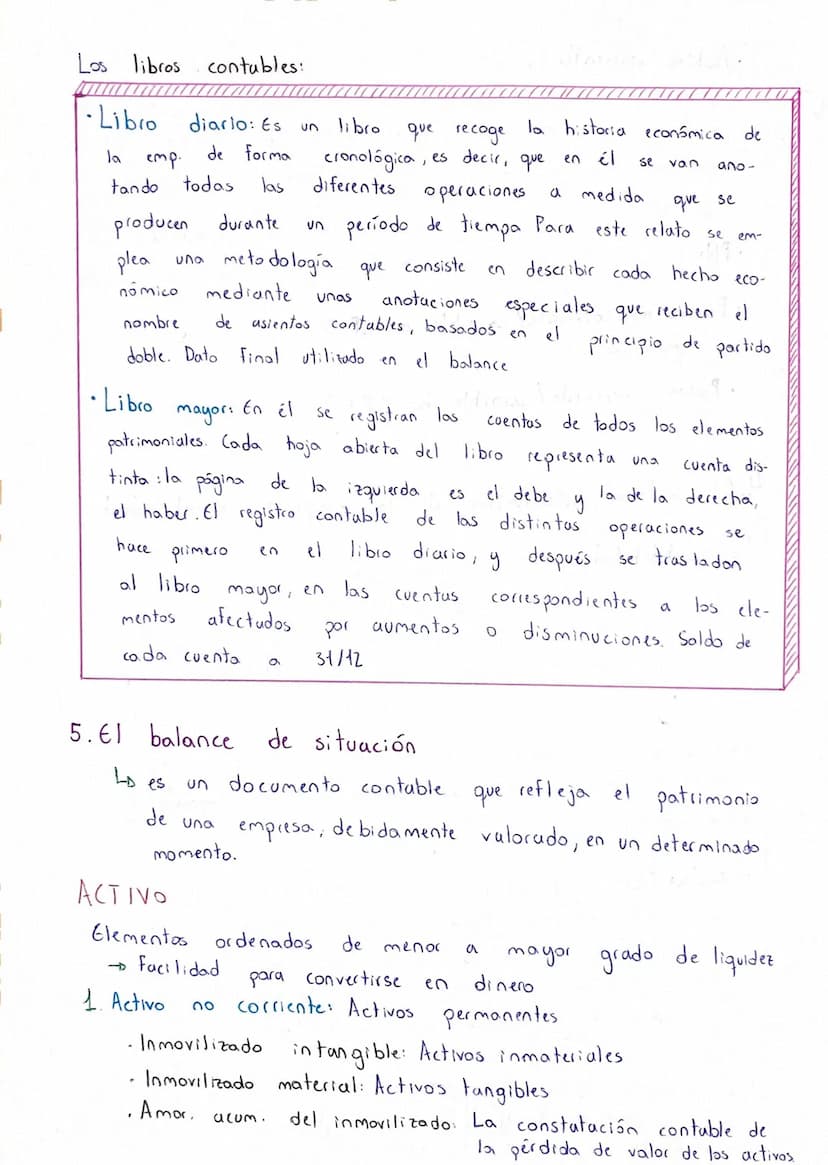 Los libros contables:
· Libro diario: Es un libro que recoge la historia económica de
la emp. de forma cronológica, es decir, que en él se van ano-
tando todas las diferentes operaciones a medida que se
producen durante un período de tiempo Para este relato se em-
plea una metodología que consiste en describir cada hecho eco-
nómico mediante unas anotaciones especiales que reciben el
nombre de asientos contables, basados en el principio de partido
doble. Dato Final utilizado en el balance
· Libro mayor: En él se registran las cuentas de todos los elementos
patrimoniales. Cada hoja abierta del libro representa una cuenta dis-
tinta: la página de la izquierda es el debe y la de la derecha,
el haber. El registro contable de las distintas operaciones se
hace primero en el libro diario, y después se trasladan
al libro mayor, en las cuentas correspondientes a los ele-
mentos afectados por aumentos o disminuciones. Saldo de
cada cuenta a 31/12
5. El balance de situación
↳ es un documento contable que refleja el patrimonio
de una empresa, debidamente valorado, en un determinado
momento.
ACTIVO
Elementos ordenados de menor a mayor grado de liquidez
→ Facilidad para convertirse en dinero
1. Activo no corriente: Activos permanentes
· Inmovilizado intangible: Activos inmateriales
· Inmovilizado material: Activos tangibles
· Amor. acum. del inmovilizado: La constatación contable de
la pérdida de valor de los activos